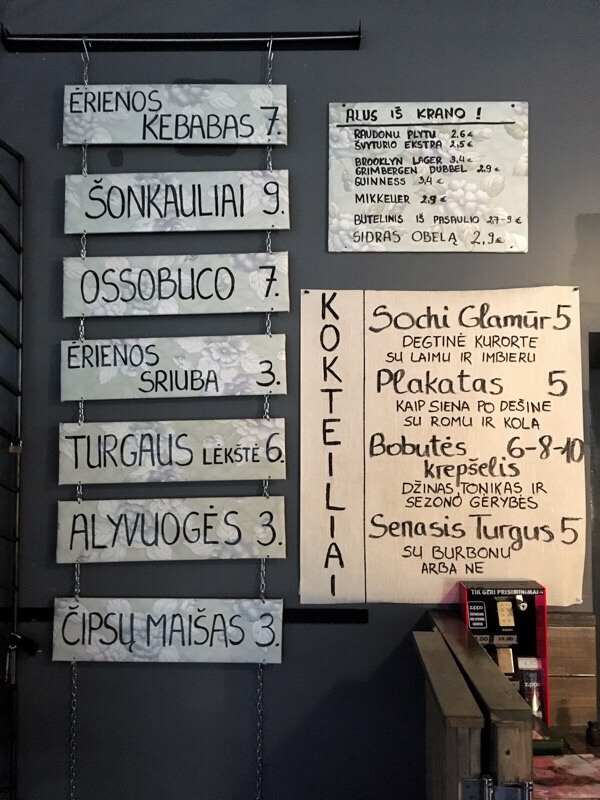 ĖRIENOS
KEBABAS 7.
ŠONKAULIAI 9.
OSSOBUCO 7.
ĖRIENOS
SRIUBA 3.
TURGAUS LĖKŠTĖ 6.
ALYVUOGĖS 3.
ČIPSŲ MAIŠAS 3.
ALUS IŠ KRANO !
RAUDONŲ PLYTŲ 2,6 €
ŠVYTURIO EKSTRA 2,5 €
BROOKLYN LAGER 3,4 €
GRIMBERGEN DUBBEL 2,9 €
GUINNESS 3,4 €
MIKKELLER 2,9 €
BUTELINIS IŠ PASAULIO 2,7-9 €
SIDRAS OBELĄ 2,9 €
KOKTEILIAI
Sochi Glamūr 5
DEGTINĖ KURORTE
SU LAIMU IR IMBIERU
Plakatas 5
KAIP SIENA PO DEŠINE
SU ROMU IR KOLA
Bobutės 6-8-10
krepšelis
DŽINAS, TONIKAS IR
SEZONO GĖRYBĖS
Senasis Turgus 5
SU BURBONU
ARBA NE
TIK GERI PRISIMINIMAI
zippo
zippo